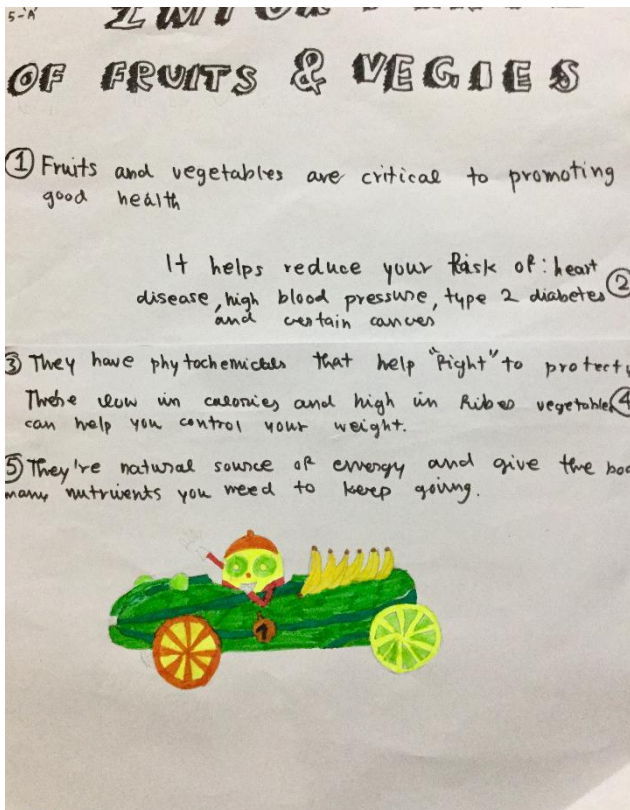 5-'A'
OF FRUITS & VEGIES
① Fruits and vegetables are critical to promoting
good health
It helps reduce your Risk of: heart
disease, high blood pressure, type 2 diabetes ②
and certain cances
③ They have phytochemicals that help "Right" to protect
There low in calories and high in Ribes vegetables ④
can help you control your weight.
⑤ They're natural source of energy and give the
many nutrients you need to keep going.
1